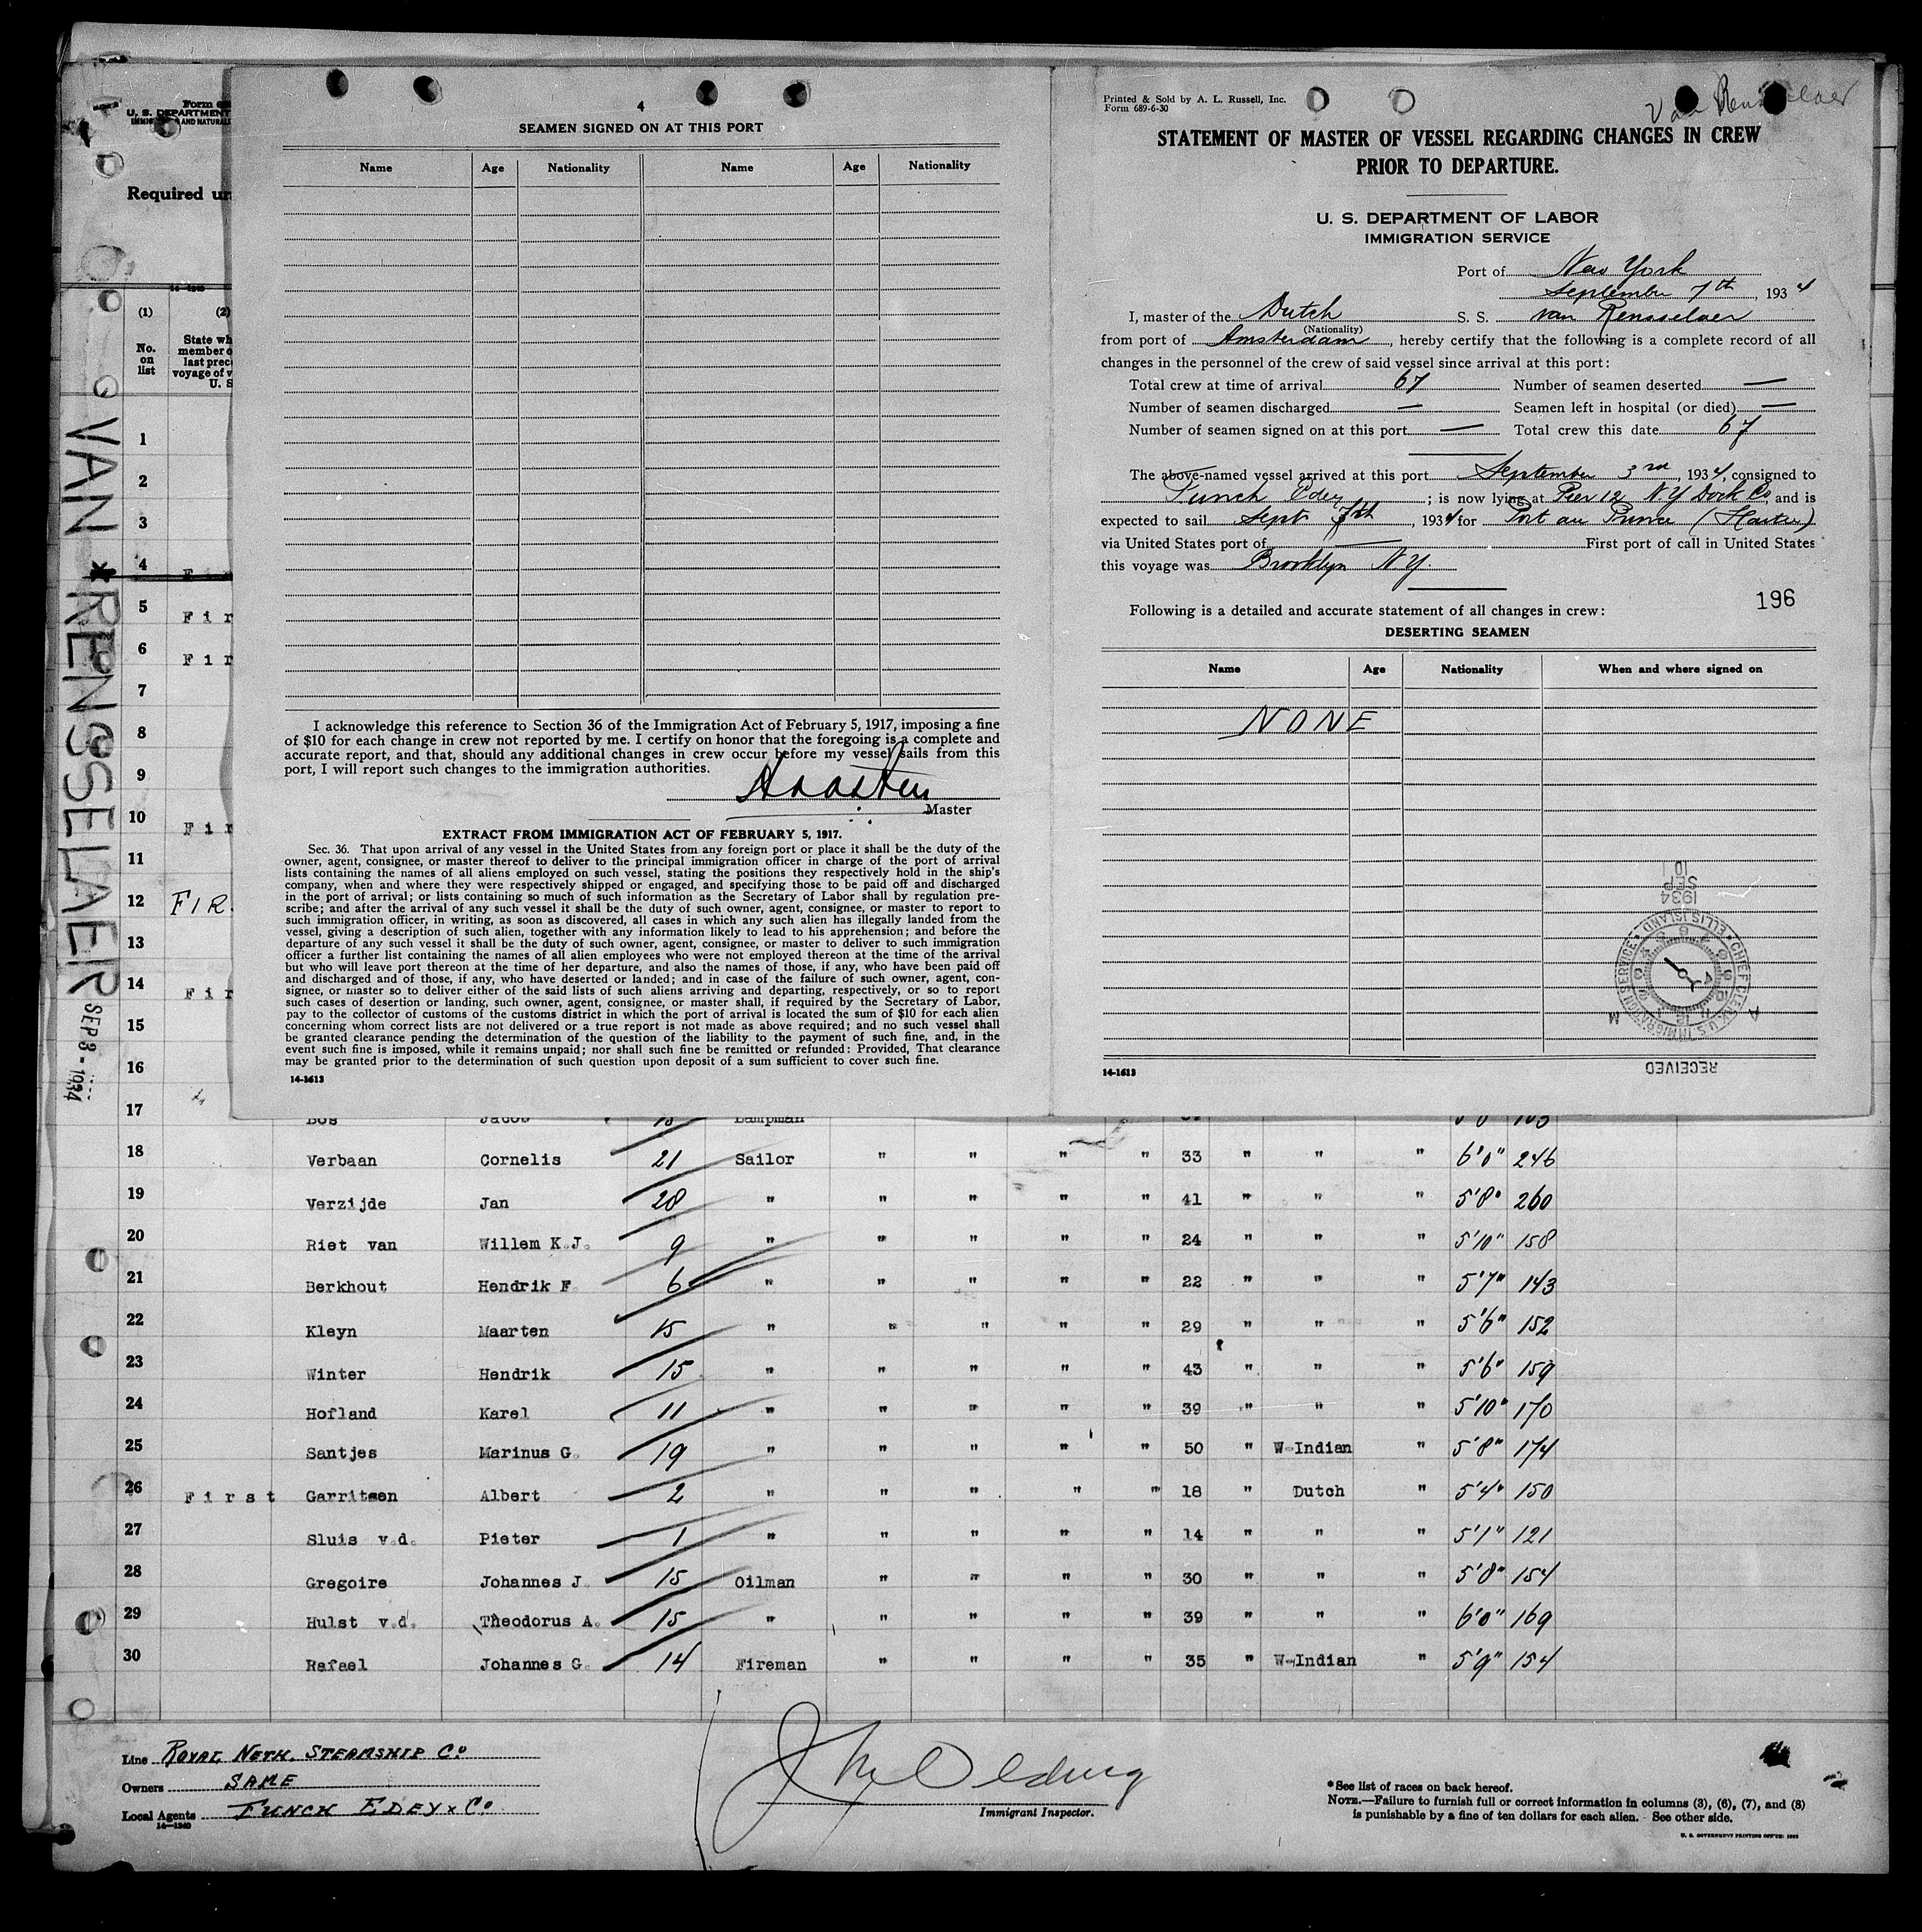 Form
U. S. DEPARTMENT
Required un
(1)
(2)
No.
on
list
State wh
member o
last prece
voyage of v
U. S
VAN * RENSSELAER
SEP 3 - 1934
1
2
3
4
5 Fir
6 Fir
7
8
9
10 Fir
11
12 FIR.
13
14 Fir
15
16
17
4
SEAMEN SIGNED ON AT THIS PORT
Name Age Nationality Name Age Nationality
I acknowledge this reference to Section 36 of the Immigration Act of February 5, 1917, imposing a fine
of $10 for each change in crew not reported by me. I certify on honor that the foregoing is a complete and
accurate report, and that, should any additional changes in crew occur before my vessel sails from this
port, I will report such changes to the immigration authorities.
Master
EXTRACT FROM IMMIGRATION ACT OF FEBRUARY 5, 1917.
Sec. 36. That upon arrival of any vessel in the United States from any foreign port or place it shall be the duty of the
owner, agent, consignee, or master thereof to deliver to the principal immigration officer in charge of the port of arrival
lists containing the names of all aliens employed on such vessel, stating the positions they respectively hold in the ship's
company, when and where they were respectively shipped or engaged, and specifying those to be paid off and discharged
in the port of arrival; or lists containing so much of such information as the Secretary of Labor shall by regulation pre-
scribe; and after the arrival of any such vessel it shall be the duty of such owner, agent, consignee, or master to report to
such immigration officer, in writing, as soon as discovered, all cases in which any such alien has illegally landed from the
vessel, giving a description of such alien, together with any information likely to lead to his apprehension; and before the
departure of any such vessel it shall be the duty of such owner, agent, consignee, or master to deliver to such immigration
officer a further list containing the names of all alien employees who were not employed thereon at the time of the arrival
but who will leave port thereon at the time of her departure, and also the names of those, if any, who have been paid off
and discharged and of those, if any, who have deserted or landed; and in case of the failure of such owner, agent, con-
signee, or master so to deliver either of the said lists of such aliens arriving and departing, respectively, or so to report
such cases of desertion or landing, such owner, agent, consignee, or master shall, if required by the Secretary of Labor,
pay to the collector of customs of the customs district in which the port of arrival is located the sum of $10 for each alien
concerning whom correct lists are not delivered or a true report is not made as above required; and no such vessel shall
be granted clearance pending the determination of the question of the liability to the payment of such fine, and, in the
event such fine is imposed, while it remains unpaid; nor shall such fine be remitted or refunded: Provided, That clearance
may be granted prior to the determination of such question upon deposit of a sum sufficient to cover such fine.
14-1613
Printed & Sold by A. L. Russell, Inc.
Form 689-6-30
Van Rensselaer
STATEMENT OF MASTER OF VESSEL REGARDING CHANGES IN CREW
PRIOR TO DEPARTURE.
U. S. DEPARTMENT OF LABOR
IMMIGRATION SERVICE
Port of New York
September 7th, 1934
I, master of the Dutch S. S. van Rensselaer
(Nationality)
from port of Amsterdam, hereby certify that the following is a complete record of all
changes in the personnel of the crew of said vessel since arrival at this port:
Total crew at time of arrival 67 Number of seamen deserted —
Number of seamen discharged — Seamen left in hospital (or died) —
Number of seamen signed on at this port — Total crew this date 67
The above-named vessel arrived at this port September 3rd, 1934, consigned to
Funch Edey; is now lying at Pier 12 NY Dock Co, and is
expected to sail Sept 7th, 1934 for Port au Prince
via United States port of — First port of call in United States
this voyage was Brooklyn NY.
196
Following is a detailed and accurate statement of all changes in crew:
DESERTING SEAMEN
Name Age Nationality When and where signed on
NONE
1934
SEP
10
CHIEF CLERK, U.S. IMMIGRATION SERVICE • ELLIS ISLAND •
A M
RECEIVED
14-1613
Bos Jacob 15 Lampman
18 Verbaan Cornelis 21 Sailor " " " " 33 " " " 6'0" 246
19 Verzijde Jan 28 " " " " " 41 " " " 5'8" 260
20 Riet van Willem K.J. 9 " " " " " 24 " " " 5'10" 158
21 Berkhout Hendrik F. 6 " " " " " 22 " " " 5'7" 143
22 Kleyn Maarten 15 " " " " " 29 " " " 5'6" 152
23 Winter Hendrik 15 " " " " " 43 " " " 5'6" 159
24 Hofland Karel 11 " " " " " 39 " " " 5'10" 170
25 Santjes Marinus G. 19 " " " " " 50 " W-Indian " 5'8" 174
26 First Garritsen Albert 2 " " " " " 18 " Dutch " 5'4" 150
27 Sluis v.d. Pieter 1 " " " " " 14 " " " 5'1" 121
28 Gregoire Johannes J. 15 Oilman " " " " 30 " " " 5'8" 154
29 Hulst v.d. Theodorus A. 15 " " " " " 39 " " " 6'0" 169
30 Rafael Johannes G. 14 Fireman " " " " 35 " W-Indian " 5'9" 154
Line ROYAL NETH. STEAMSHIP Co
Owners SAME
Local Agents FUNCH EDEY & Co
14-1240
Immigrant Inspector.
*See list of races on back hereof.
NOTE.—Failure to furnish full or correct information in columns (3), (6), (7), and (8)
is punishable by a fine of ten dollars for each alien. See other side.
U. S. GOVERNMENT PRINTING OFFICE: